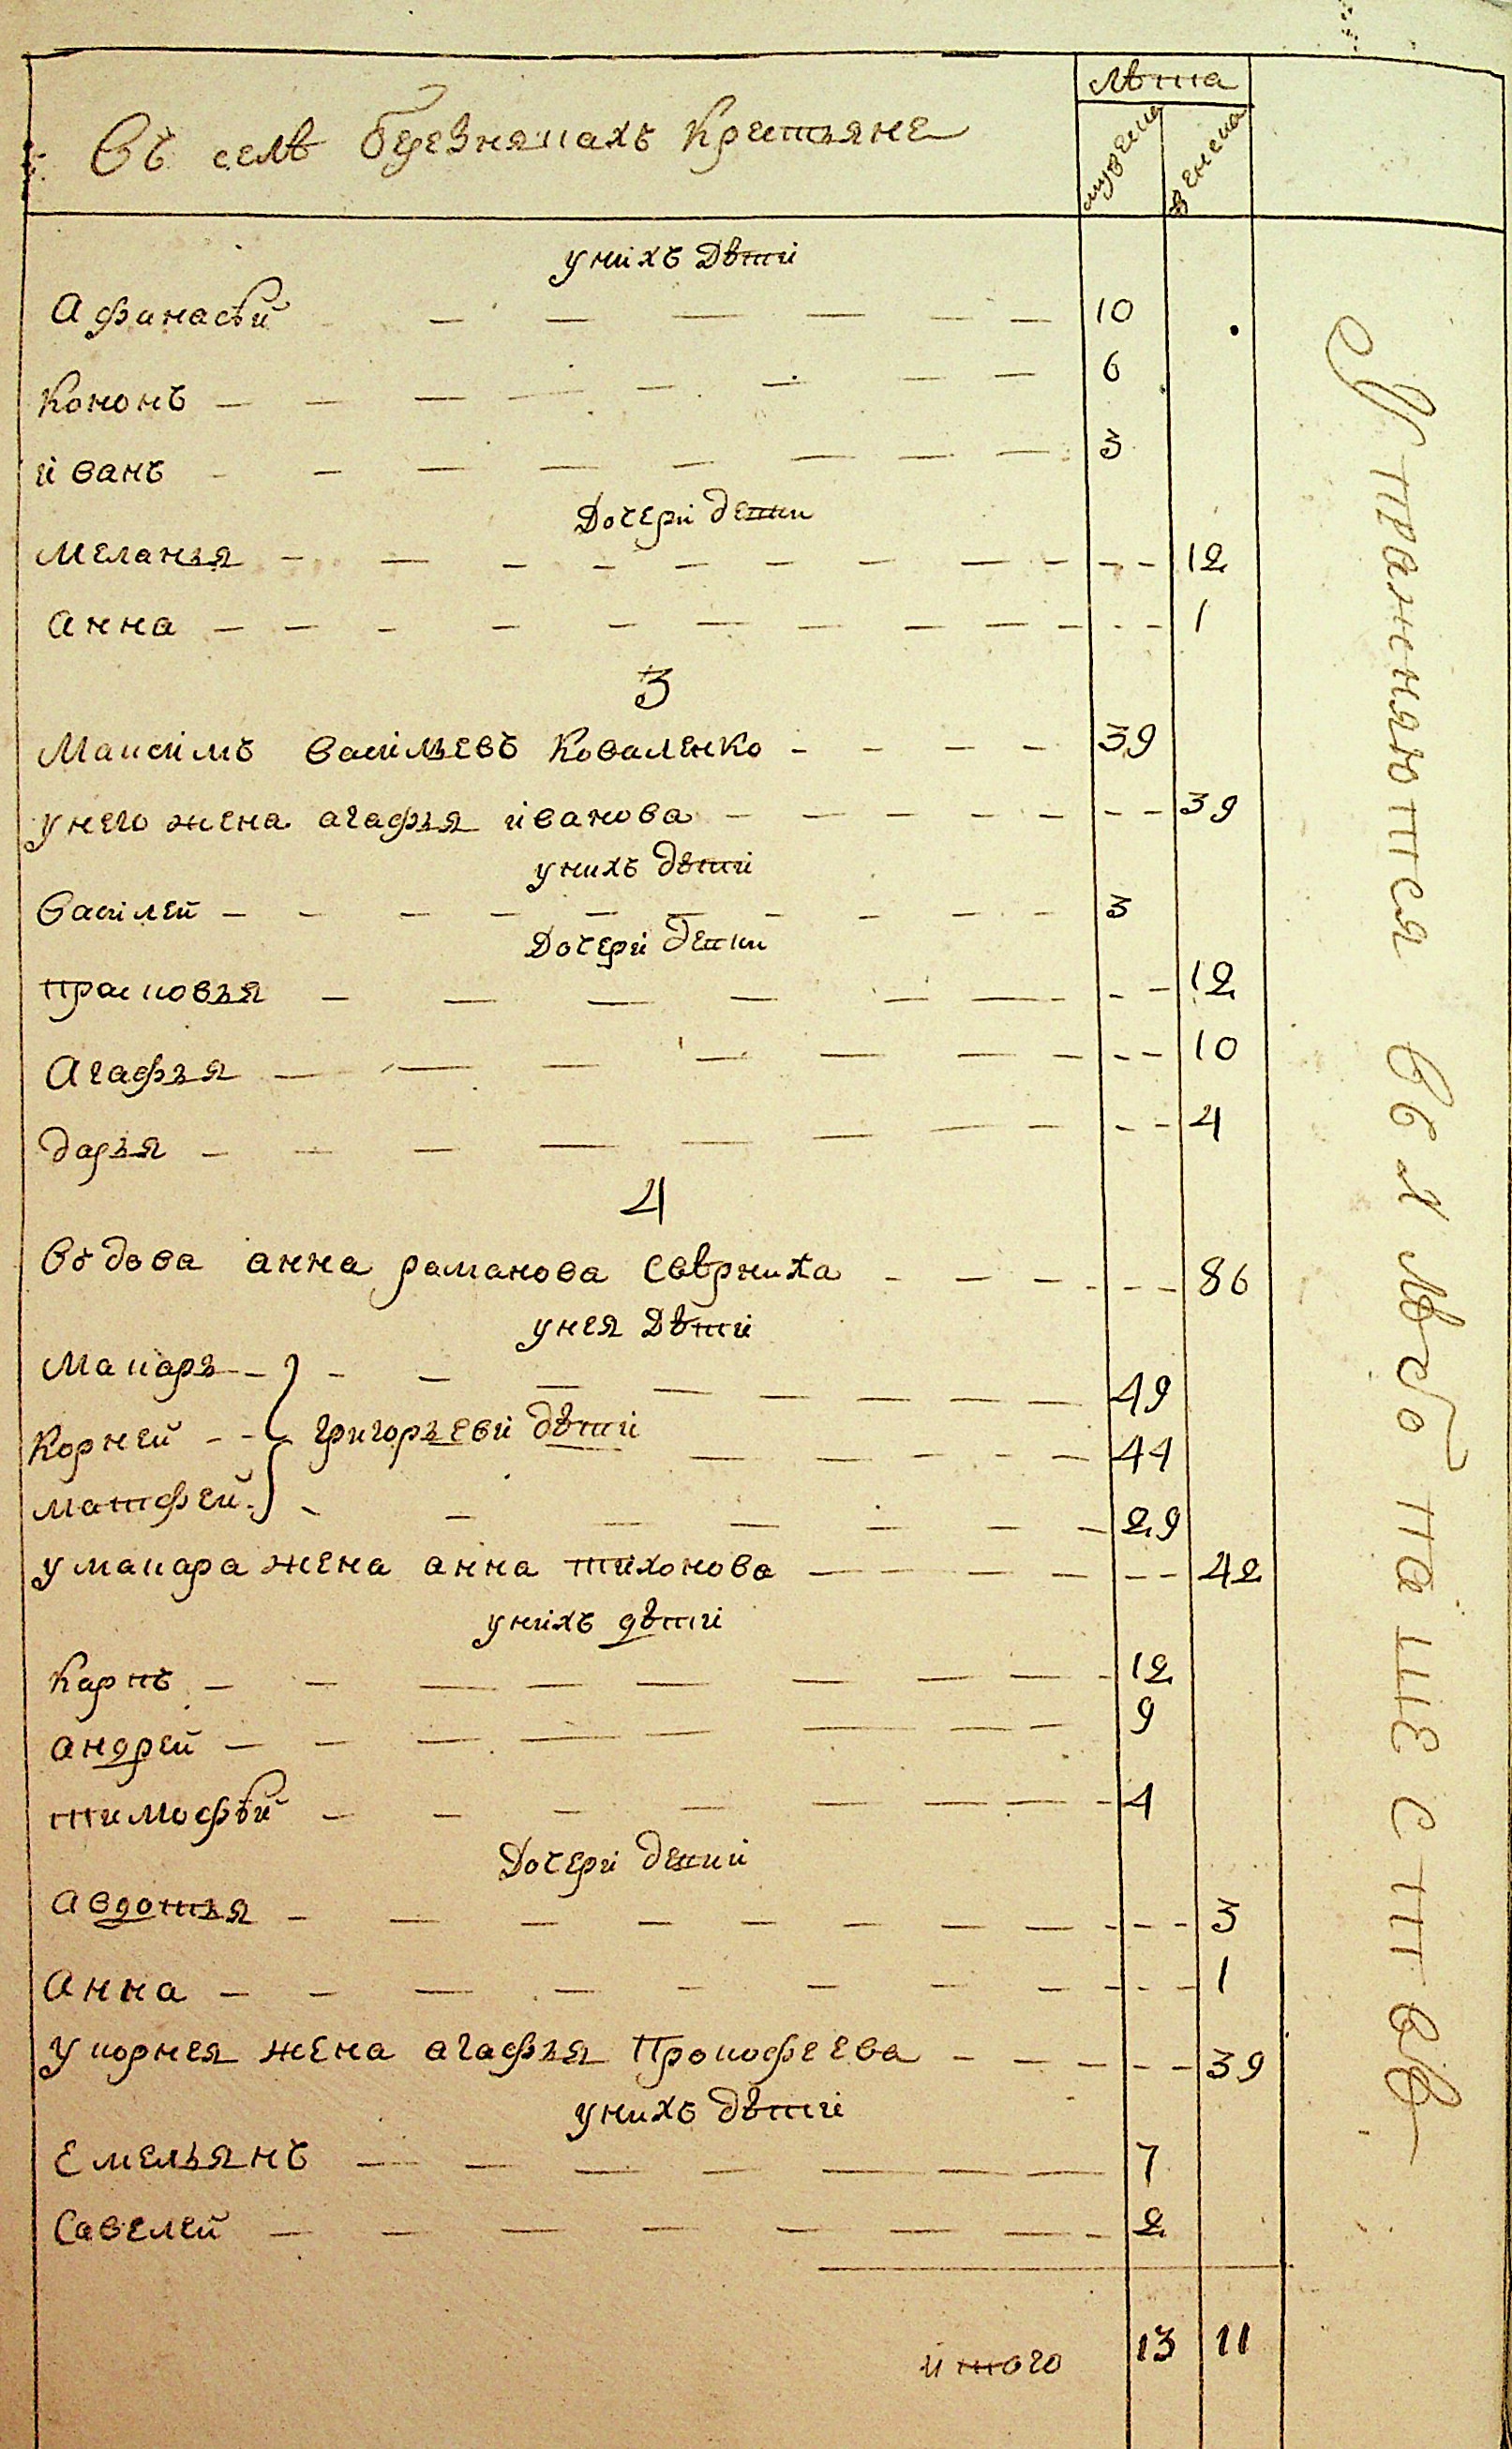 лѣта
Въ селѣ Березнякахъ Крестьяне
мужеска
женска
у нихъ дѣти
Афинасѣй — 10
Кононъ — 6
йванъ — 3
Дочери дѣтки
Меланья — 12
Анна — 1
3
Максимъ Васильевъ Коваленко — 39
у него жена агафья иванова — 39
у нихъ дѣти
Василей — 3
Дочери детки
прасковья — 12
Агафья — 10
дарья — 4
4
Вдова анна раманова Севрниха — 86
у нея дѣти
Макаръ — 49
Корней — григорьеви дѣти — 44
Матфей — 29
у макара жена анна тихонова — 42
у нихъ дѣти
Карпъ — 12
андрей — 9
тимофѣй — 4
Дочери детки
Авдотья — 3
Анна — 1
у корнея жена агафья Прокофеева — 39
у нихъ дѣти
Емельянъ — 7
Савелей — 2
итого 13 11
Упражняются въ хлѣбопашествѣ